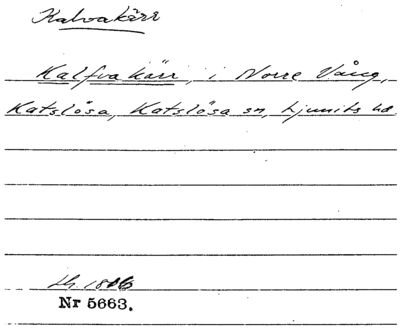 Kalvakärr
Kalfva kärr, i Norre Vång,
Katslösa, Katslösa sn, Ljunits hd
Lh 1806
Nr 5663.